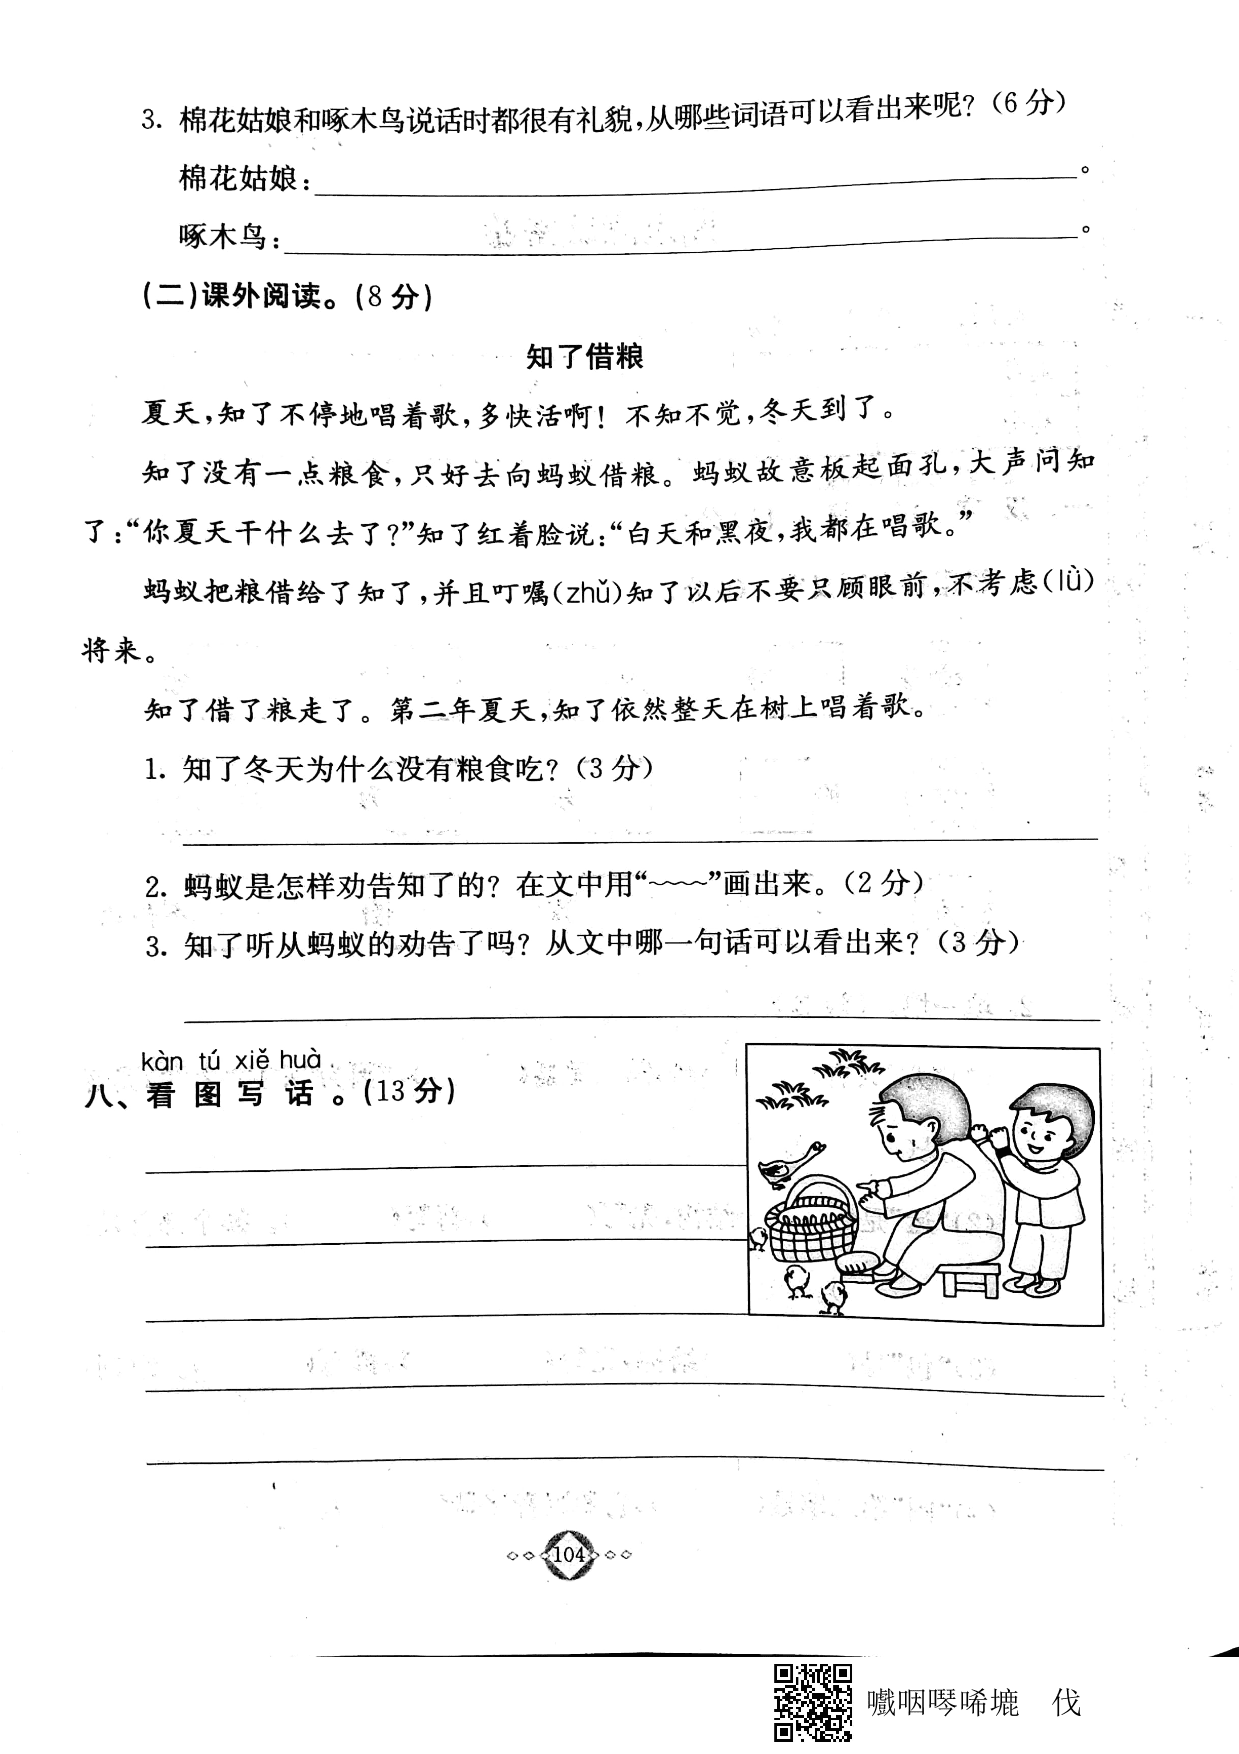 3. 棉花姑娘和啄木鸟说话时都很有礼貌,从哪些词语可以看出来呢?(6分)
棉花姑娘:。
啄木鸟:。
(二)课外阅读。(8分)
知了借粮
夏天,知了不停地唱着歌,多快活啊! 不知不觉,冬天到了。
知了没有一点粮食,只好去向蚂蚁借粮。蚂蚁故意板起面孔,大声问知
了:“你夏天干什么去了?”知了红着脸说:“白天和黑夜,我都在唱歌。”
蚂蚁把粮借给了知了,并且叮嘱(zhǔ)知了以后不要只顾眼前,不考虑(lǜ)
将来。
知了借了粮走了。第二年夏天,知了依然整天在树上唱着歌。
1. 知了冬天为什么没有粮食吃?(3分)
2. 蚂蚁是怎样劝告知了的? 在文中用“﹏﹏”画出来。(2分)
3. 知了听从蚂蚁的劝告了吗? 从文中哪一句话可以看出来?(3分)
kàn tú xiě huà
八、看图写话。(13分)
104
嚱咽噿唏摝 伐